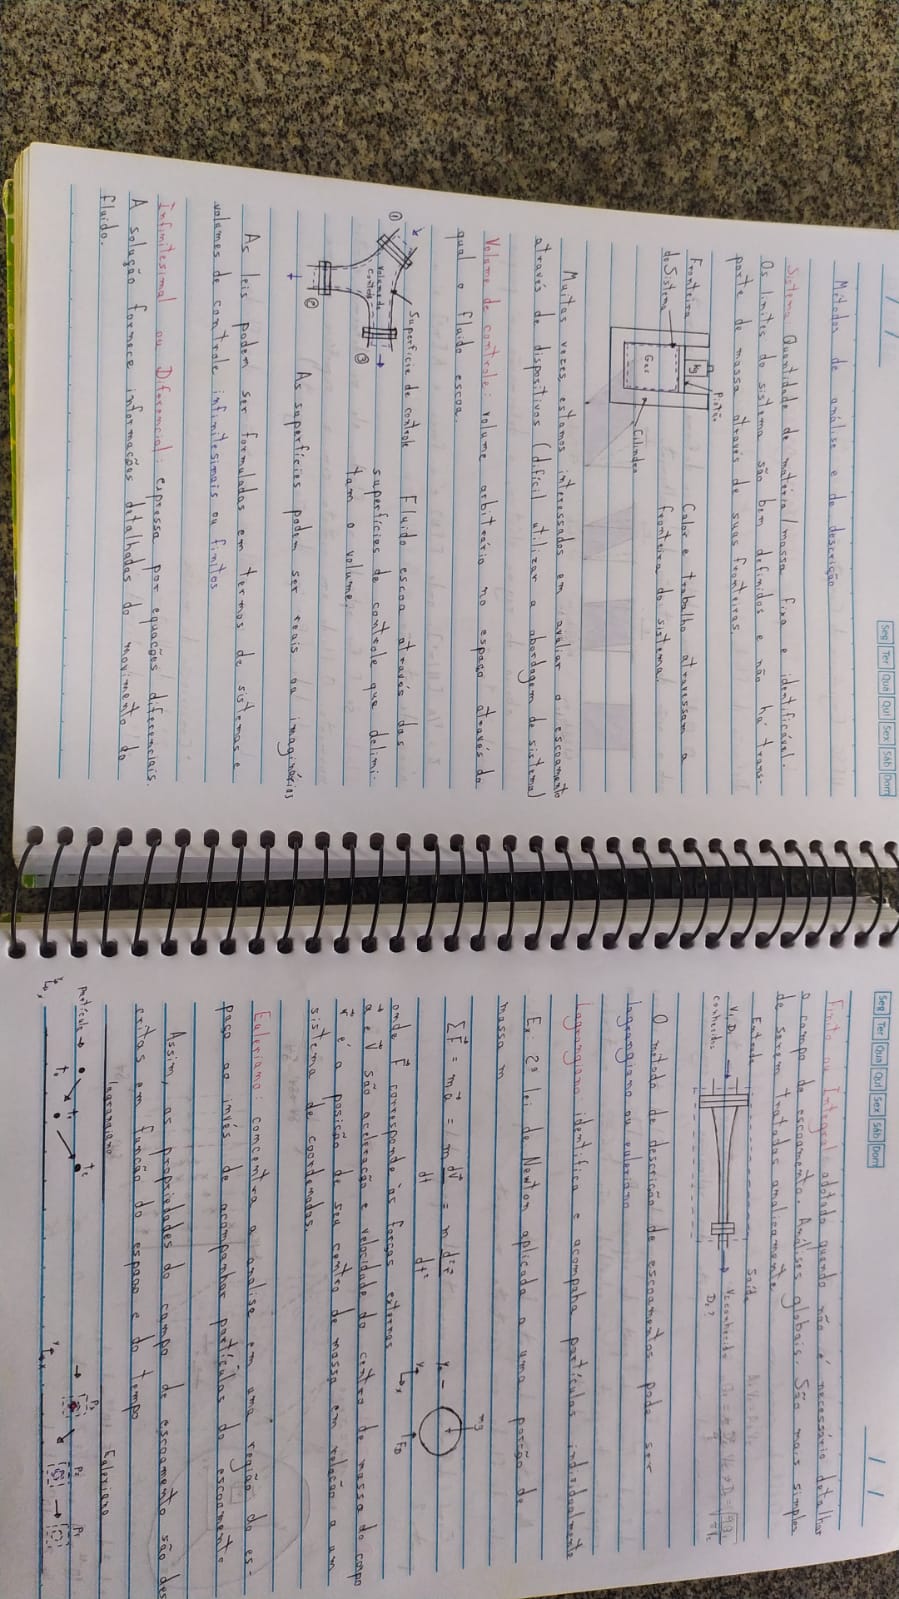 / /
Seg Ter Qua Qui Sex Sáb Dom
Métodos de análise e de descrição
Sistema: Quantidade de matéria/massa fixa e identificável.
Os limites do sistema são bem definidos e não há trans-
porte de massa através de suas fronteiras
Fronteira
do Sistema
Kg
Pistão
Gás
Cilindro
Calor e trabalho atravessam a
fronteira do sistema.
Muitas vezes estamos interessados em avaliar o escoamento
através de dispositivos (difícil utilizar a abordagem de sistema)
Volume de controle: volume arbitrário no espaço através do
qual o fluido escoa.
Superfície de controle
①
Volume de
Controle
②
③
Fluido escoa através das
superfícies de controle que delimi-
tam o volume;
As superfícies podem ser reais ou imaginárias
As leis podem ser formuladas em termos de sistemas e
volumes de controle infinitesimais ou finitos
Infinitesimal ou Diferencial: expressa por equações diferenciais.
A solução fornece informações detalhadas do movimento do
fluido.
Seg Ter Qua Qui Sex Sáb Dom
/ /
Finito ou Integral adotado quando não é necessário detalhar
o campo de escoamento. Análises globais. São mais simples
de serem tratadas analicamente
Entrada
Saída
V₁, D₁
conhecidos
V₂ conhecido
D₂?
O método de descrição de escoamentos pode ser
lagrangiano ou euleriano
Lagrangiano identifica e acompaha partículas individualmente
Ex: 2ª lei de Newton aplicada a uma porção de
massa m
ΣF⃗ = ma⃗ = m dV⃗/dt = m d²r⃗/dt²
mg
FD
onde F⃗ corresponde às forças externas
a⃗ e V⃗ são aceleração e velocidade do centro de massa do corpo
r⃗ é a posição de seu centro de massa em relação a um
sistema de coordenadas.
Euleriano: concentra a analise em uma região do es-
paço ao invés de acompanhar partículas do escoamento
Assim, as propriedades do campo de escoamento são des
critas em função do espaço e do tempo
Lagrangiano
Euleriano
Partícula
t₀
t₁
t₂
P₃
P₂
P₁